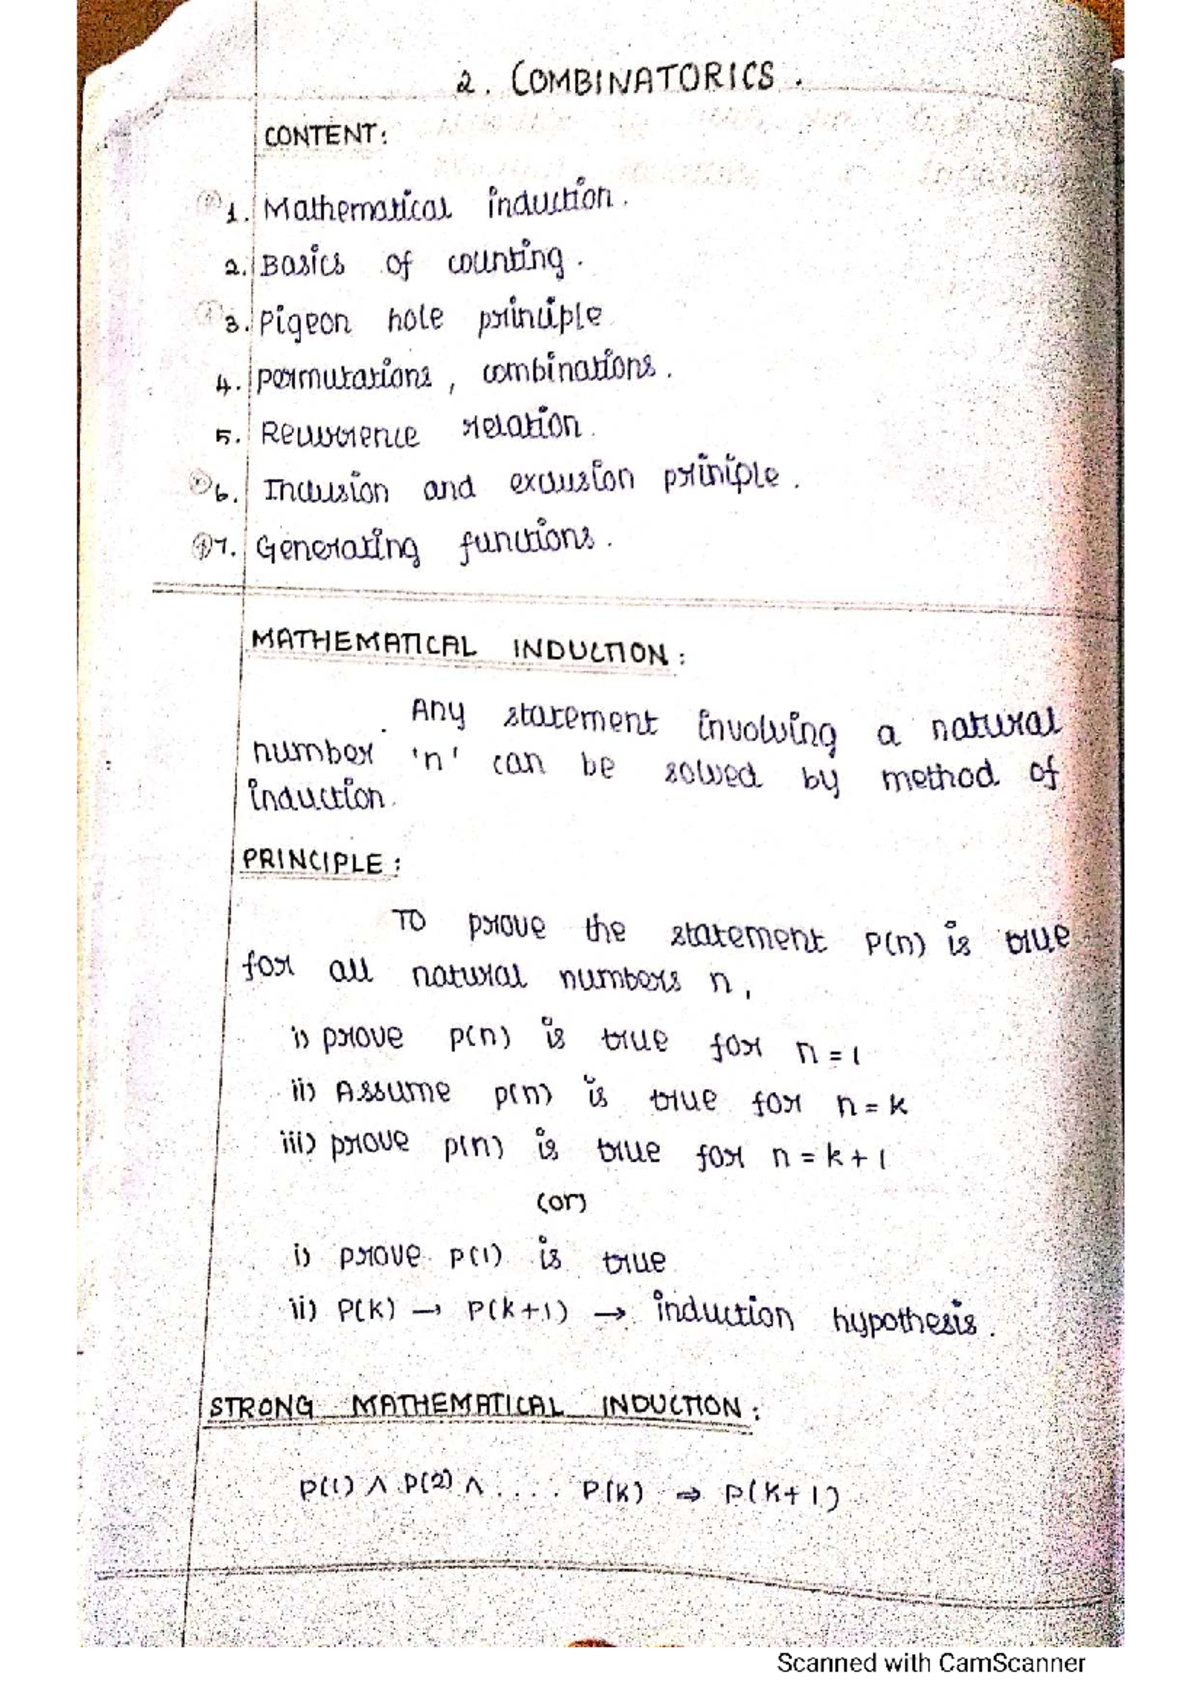 2. COMBINATORICS.
CONTENT:
1. Mathematical induction.
2. Basics of counting.
3. Pigeon hole principle
4. permutations, combinations.
5. Recurrence relation.
6. Inclusion and exclusion priniple.
7. Generating functions.
MATHEMATICAL INDUCTION:
Any statement involving a natural
number 'n' can be solved by method of
induction.
PRINCIPLE:
To prove the statement P(n) is true
for all natural numbers n,
i) prove p(n) is true for n = 1
ii) Assume p(n) is true for n = k
iii) prove p(n) is true for n = k + 1
(or)
i) prove p(1) is true
ii) P(k) → P(k+1) → induction hypothesis.
STRONG MATHEMATICAL INDUCTION:
P(1) ∧ P(2) ∧ .... P(k) ⇒ P(k+1)
Scanned with CamScanner